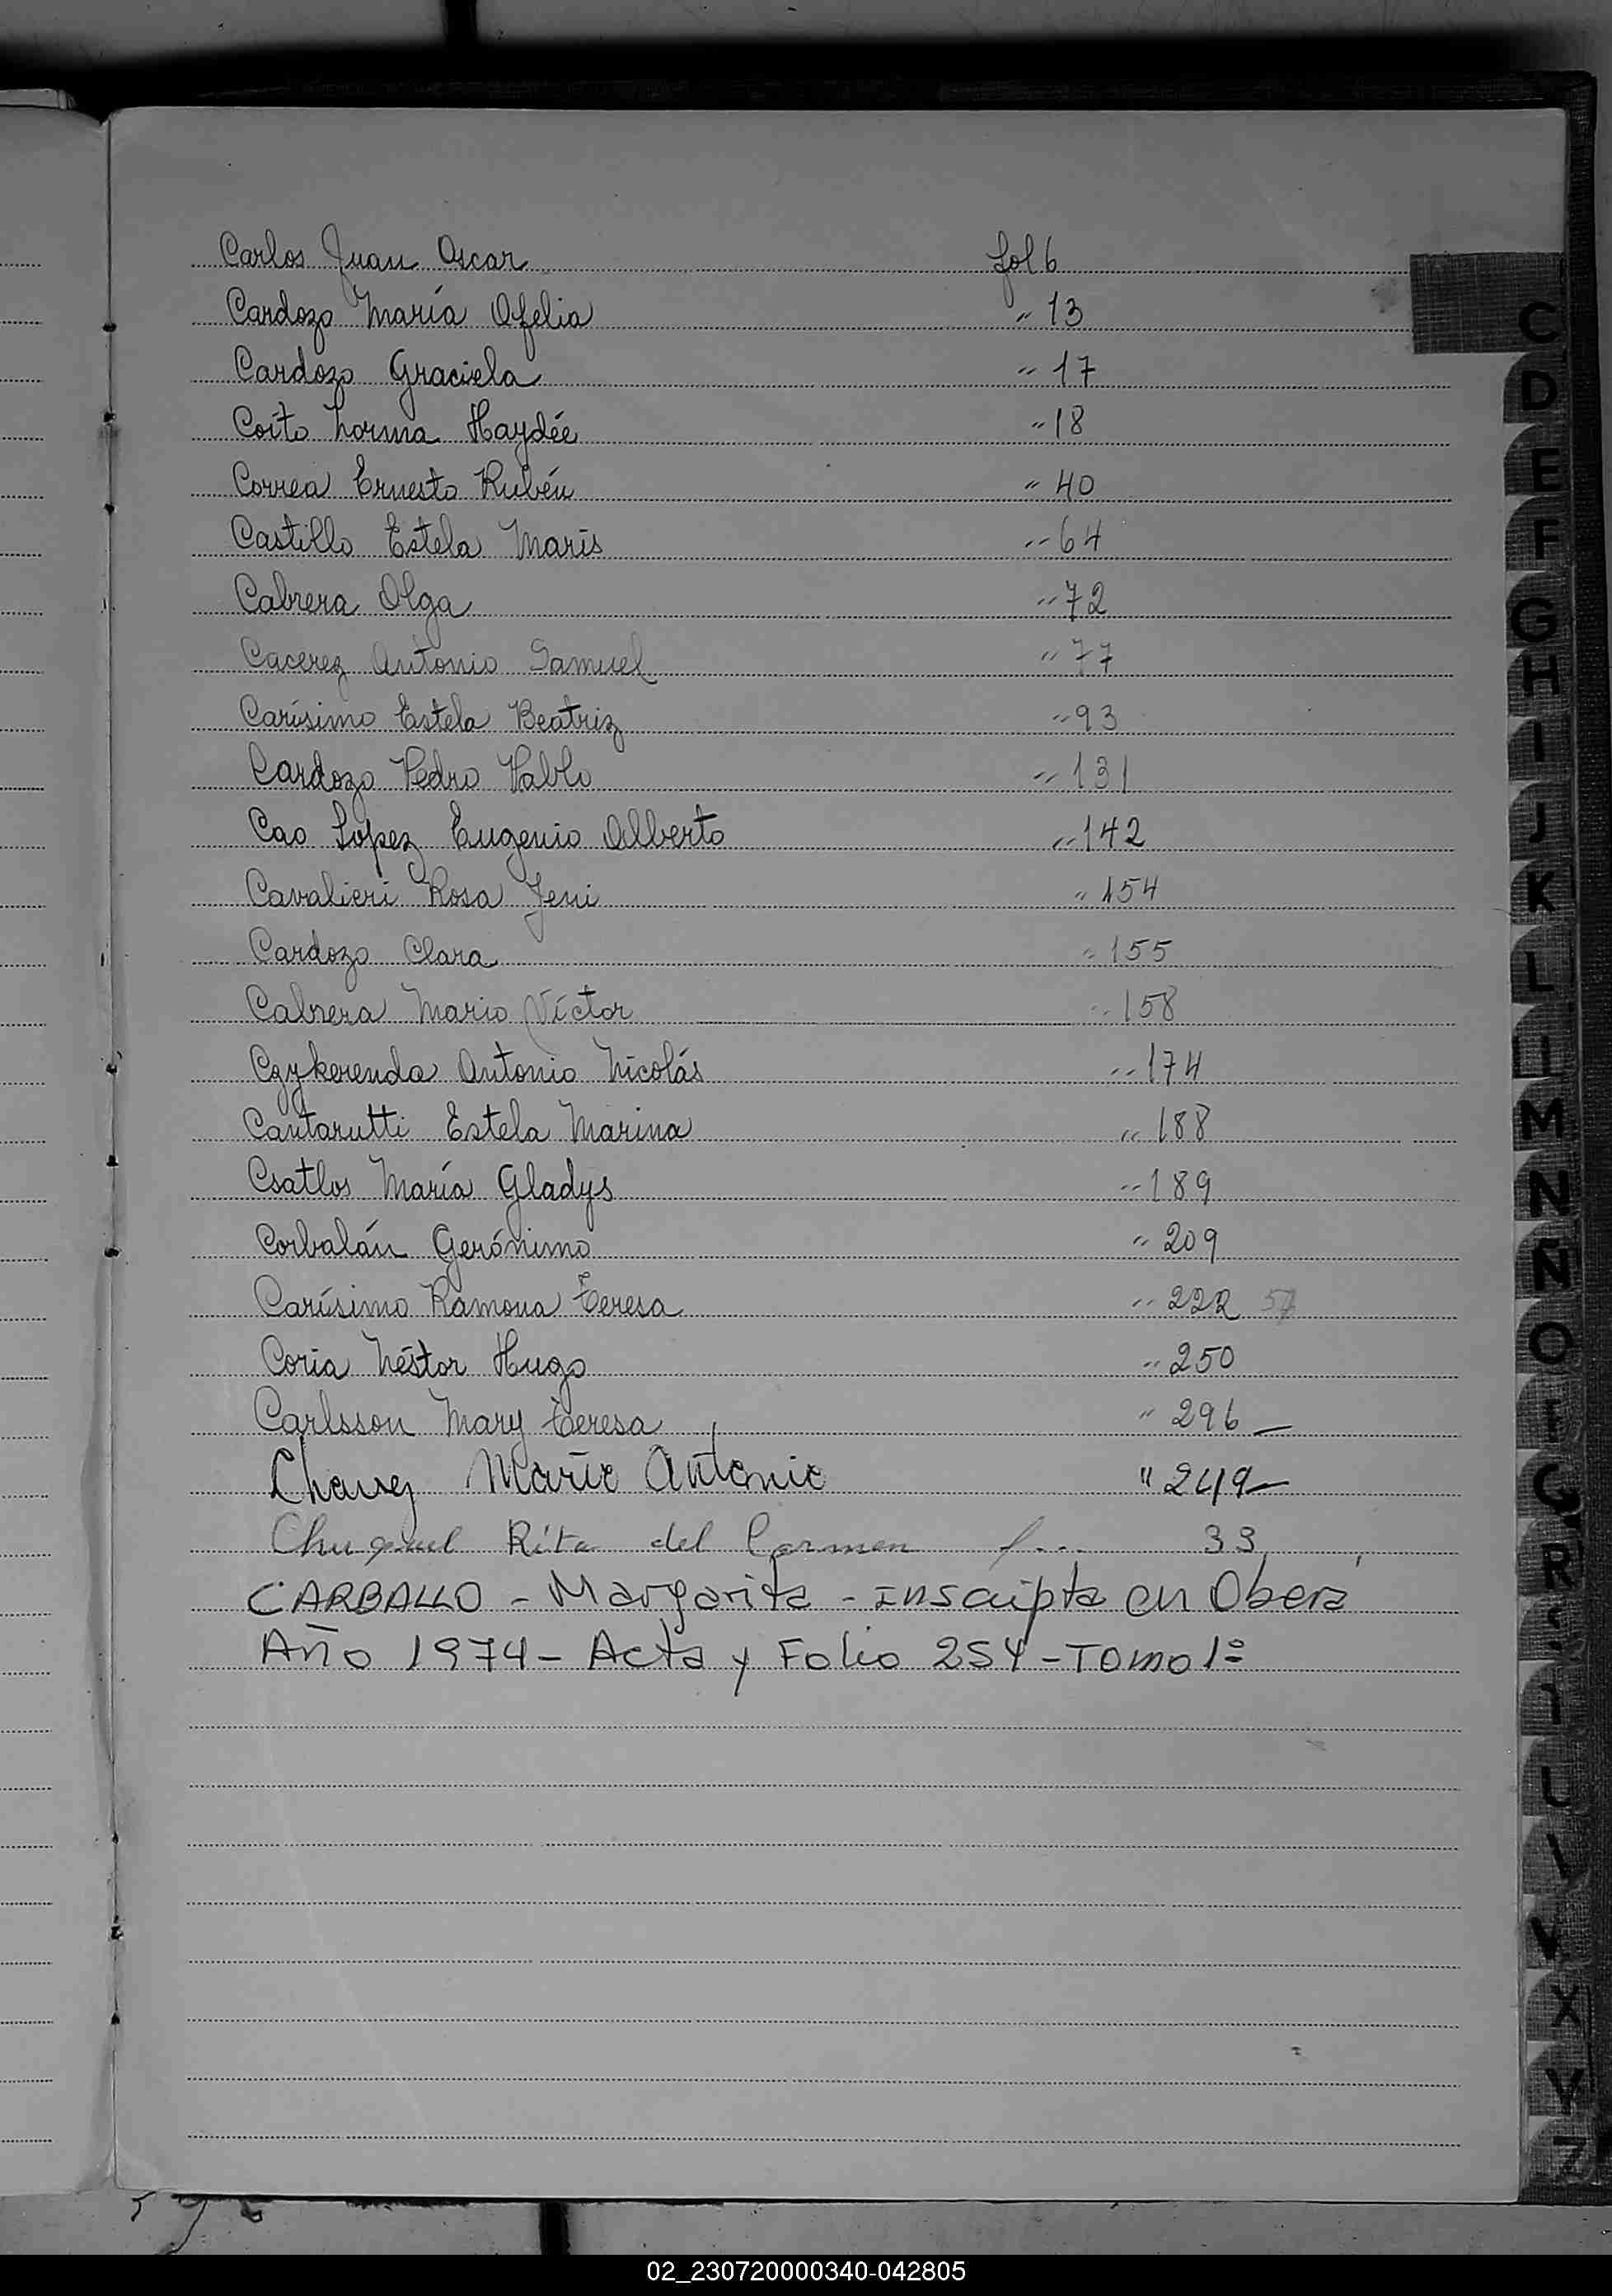 Carlos Juan Oscar fol 6
Cardozo María Ofelia " 13
Cardozo Graciela " 17
Coito Norma Haydée " 18
Correa Ernesto Rubén " 40
Castillo Estela Maris " 64
Cabrera Olga " 72
Cacerez Antonio Samuel " 77
Carísimo Estela Beatriz " 93
Cardozo Pedro Pablo " 131
Cao Lopez Eugenio Alberto " 142
Cavalieri Rosa Jeni " 154
Cardozo Clara " 155
Cabrera Mario Víctor " 158
Czykerenda Antonio Nicolás " 174
Cantarutti Estela Marina " 188
Csatlos María Gladys " 189
Corbalán Gerónimo " 209
Carísimo Ramona Teresa " 222
Coria Néstor Hugo " 250
Carlsson Mary Teresa " 296 —
Antonio " 249 —
Rita del Carmen f... 33
CARBALLO - Margarita - inscripta en Oberá
Año 1974 - Acta y Folio 254 - Tomo 1º
C
D
E
F
G
H
I
J
K
L
LL
M
N
Ñ
O
Q
R
X
Y
Z
02_230720000340-042805